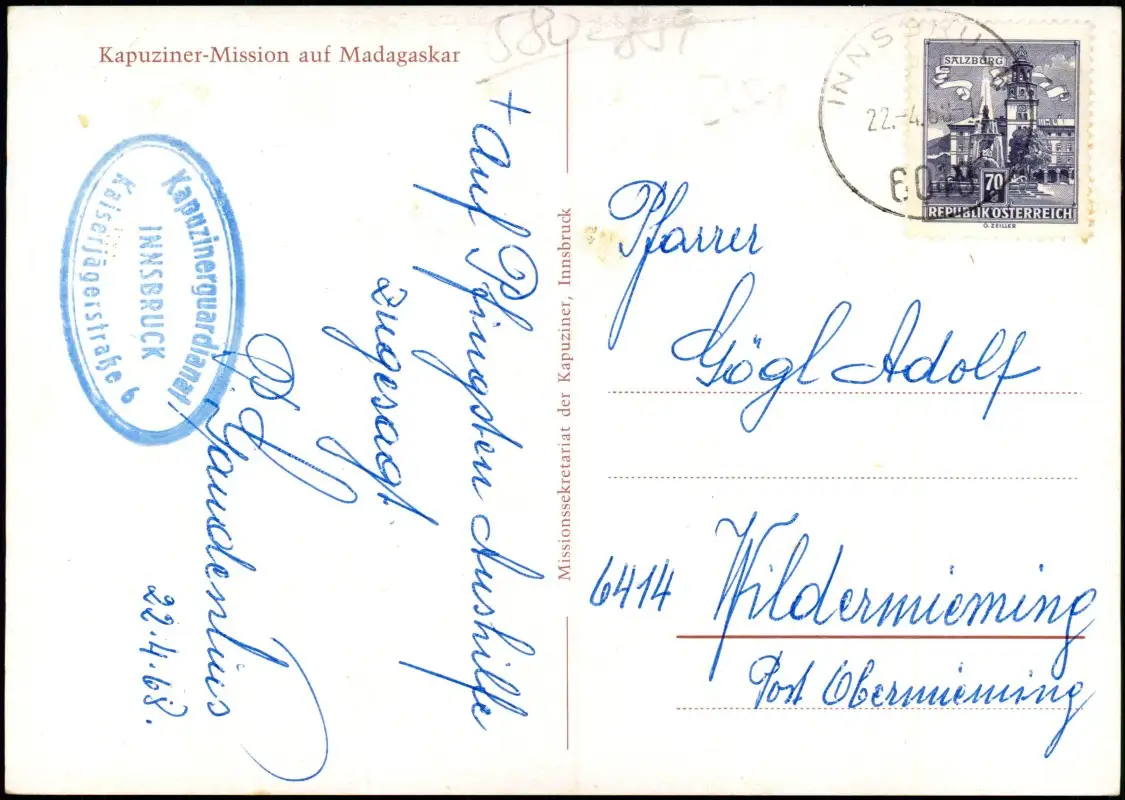 Kapuziner-Mission auf Madagaskar
Kapuzinerguardianat
INNSBRUCK
Kaiserjägerstraße 6
+ Auf Pfingsten Aushilfe
zugesagt.
P. Gaudentius
22.4.68.
Missionssekretariat der Kapuziner, Innsbruck
INNSBRUCK
22.-4.68-
SALZBURG
70
REPUBLIK ÖSTERREICH
O. ZEILLER
Pfarrer
Gögl Adolf
6414 Wildermieming
Post Obermieming